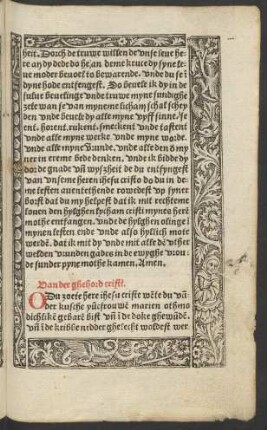 heit. Dorch de truwe willen de vnse leue he
re an dy dede do he an deme kruce dy syne le
ue moder beuoel to bewarende. vnde du se in
dyne hode entfengest. So beuele ik dy in de
sulue beuelinge vnde truwe myne sundighe
zele wan se van myneme licham schal schey
den vnde beuele dy alle myne vyff sinne/ se
ent. horent. rukent. smekent vnde tastent
vnde alle myne werke vnde myne worde.
vnde alle myne vrunde. vnde alle den be myn
ner in ereme bede denken. vnde ik bidde dy
dor de gnade vnde wyszheit de du entfyngest
van vnseme heren ihesu cristo do du in de
me lesten auentethende rowedest vp syner
borst dat du my helpest dat ik mit rechteme
louen den hylghen lycham cristi mynes heren
mothe entfangen. vnde de hylghen olinge in
mynen lesten ende vnde also hyllich mote
werdē. dat ik mit dy vnde mit alle dē vther
welden vrunden gades in de ewyghe vrou
de sunder pyne mothe kamen. Amen.
Van der ghebord cristi.
O Du zoete here ihesu criste wēte du vā
der kusche yūcfrouwē marien othmo
dichlikē gebarē bist vnde ī de doke ghewūdē.
vnde ī de kribbe nedder ghelecht woldest wer